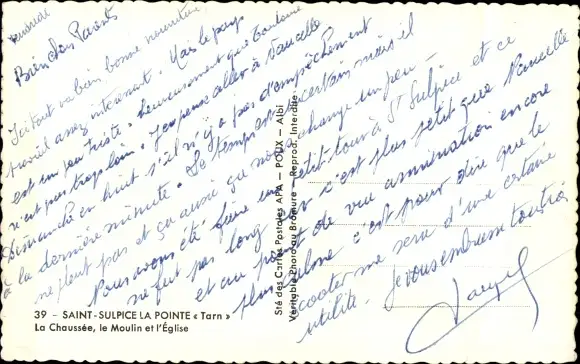 Vendredi
Bien chers Parents
Ici tout va bien bonne nourriture
travail assez intéressant. Mais le pays
est un peu triste. Heureusement que Toulouse
n'est pas trop loin. Je pense aller à Naucelle
Dimanche en huit s'il n'y a pas d'empêchement
à la dernière minute. Le temps est incertain mais il
ne pleut pas et ça aussi que nous change un peu -
Nous avons été faire un petit tour à St Sulpice et ce
ne fut pas long car c'est plus petit que Naucelle
et au point de vue animation encore
plus calme c'est pour dire que le
scooter me sera d'une certaine
utilité. Je vous embrasse tous trois
Jacques
39 - SAINT-SULPICE LA POINTE « Tarn »
La Chaussée, le Moulin et l'Église
Sté des Cartes Postales APA - POUX - Albi
Véritable Photo au Bromure - Reprod. Interdite